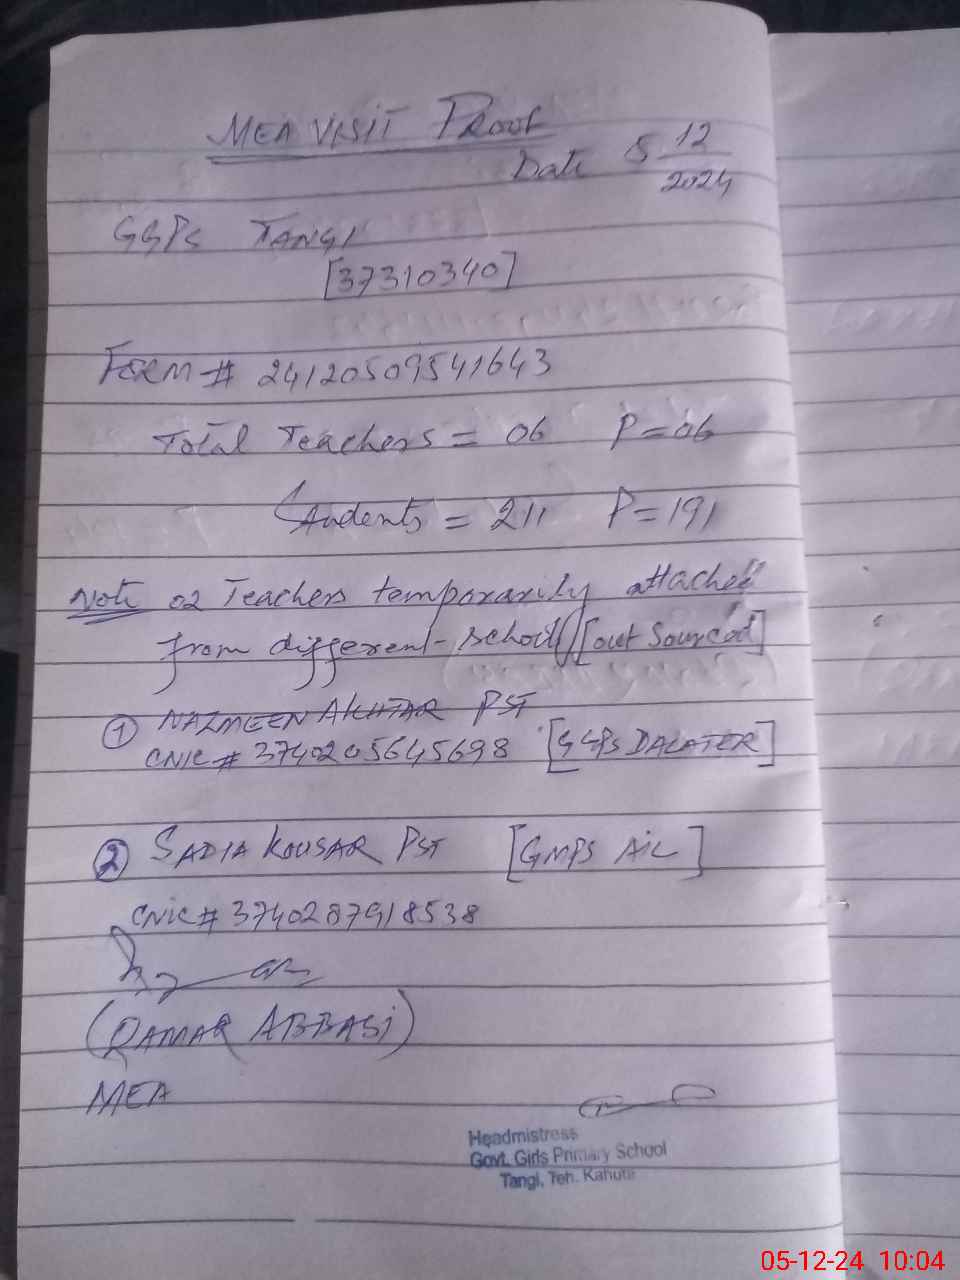 MEA VISIT PROOF
Date 5 12
2024
GGPS TANGI
[37310340]
FORM # 24120509541643
Total Teachers = 06 P=06
Students = 211 P=191
Note 02 Teachers temporarily attached
from different school/[out Sourced]
① NAZMEEN AKHTAR PST
CNIC # 3740205645698 [GGPS DALATER]
② SADIA KOUSAR PST [GMPS AiL]
CNIC # 3740287918538
(QAMAR ABBASi)
MEA
Headmistress
Govt. Girls Primary School
Tangi, Teh. Kahuta
05-12-24 10:04